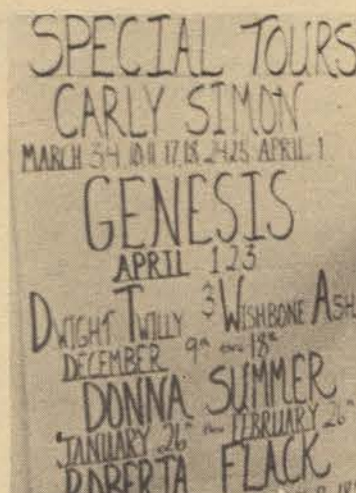 SPECIAL TOURS
CARLY SIMON
MARCH 3-4 10-11 17,18 24,25 APRIL 1
GENESIS
APRIL 1 2 3
DWIGHT TWILLY & WISHBONE ASH
DECEMBER 9th thru 18th
DONNA SUMMER
JANUARY 26th thru FEBRUARY 26th
ROBERTA FLACK